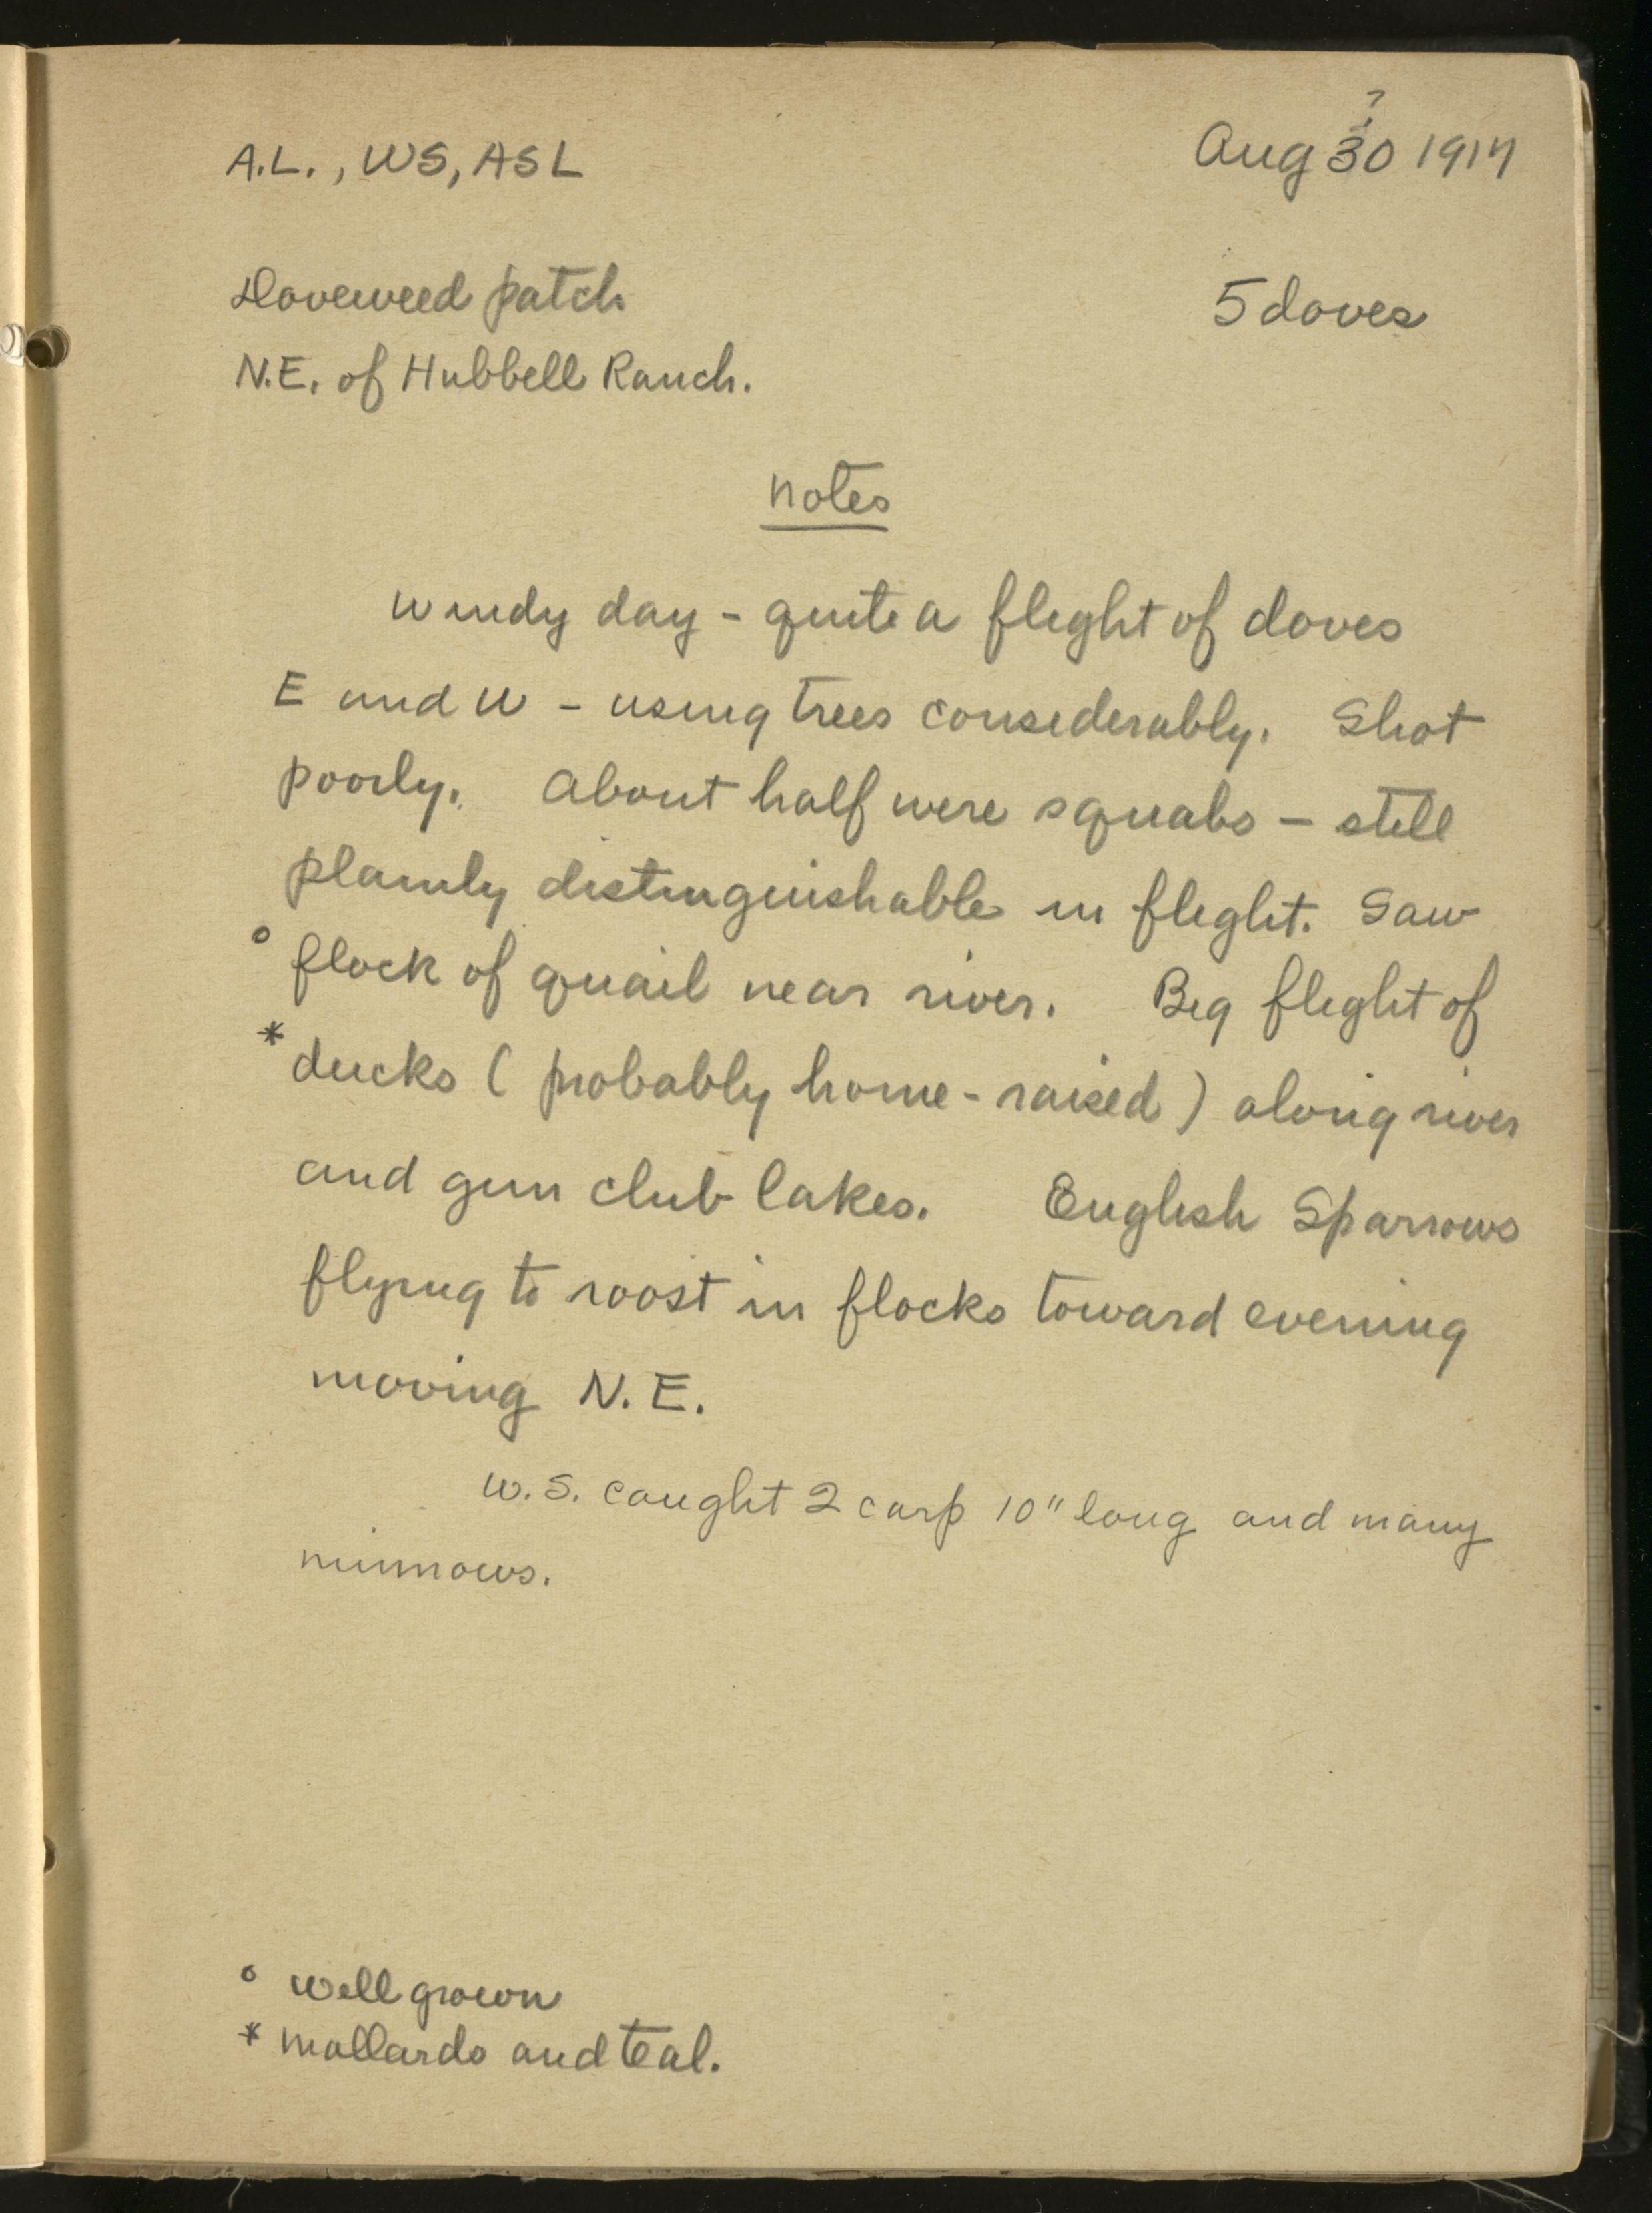 ?
A.L., WS, ASL Aug 30 1917
Doveweed patch 5 doves
N.E. of Hubbell Ranch.
Notes
Windy day - quite a flight of doves
E and W - using trees considerably. Shot
poorly. About half were squabs - still
plainly distinguishable in flight. Saw
° flock of quail near river. Big flight of
* ducks (probably home-raised) along river
and gun club lakes. English Sparrows
flying to roost in flocks toward evening
moving N.E.
W.S. caught 2 carp 10" long and many
minnows.
° well grown
* mallards and teal.